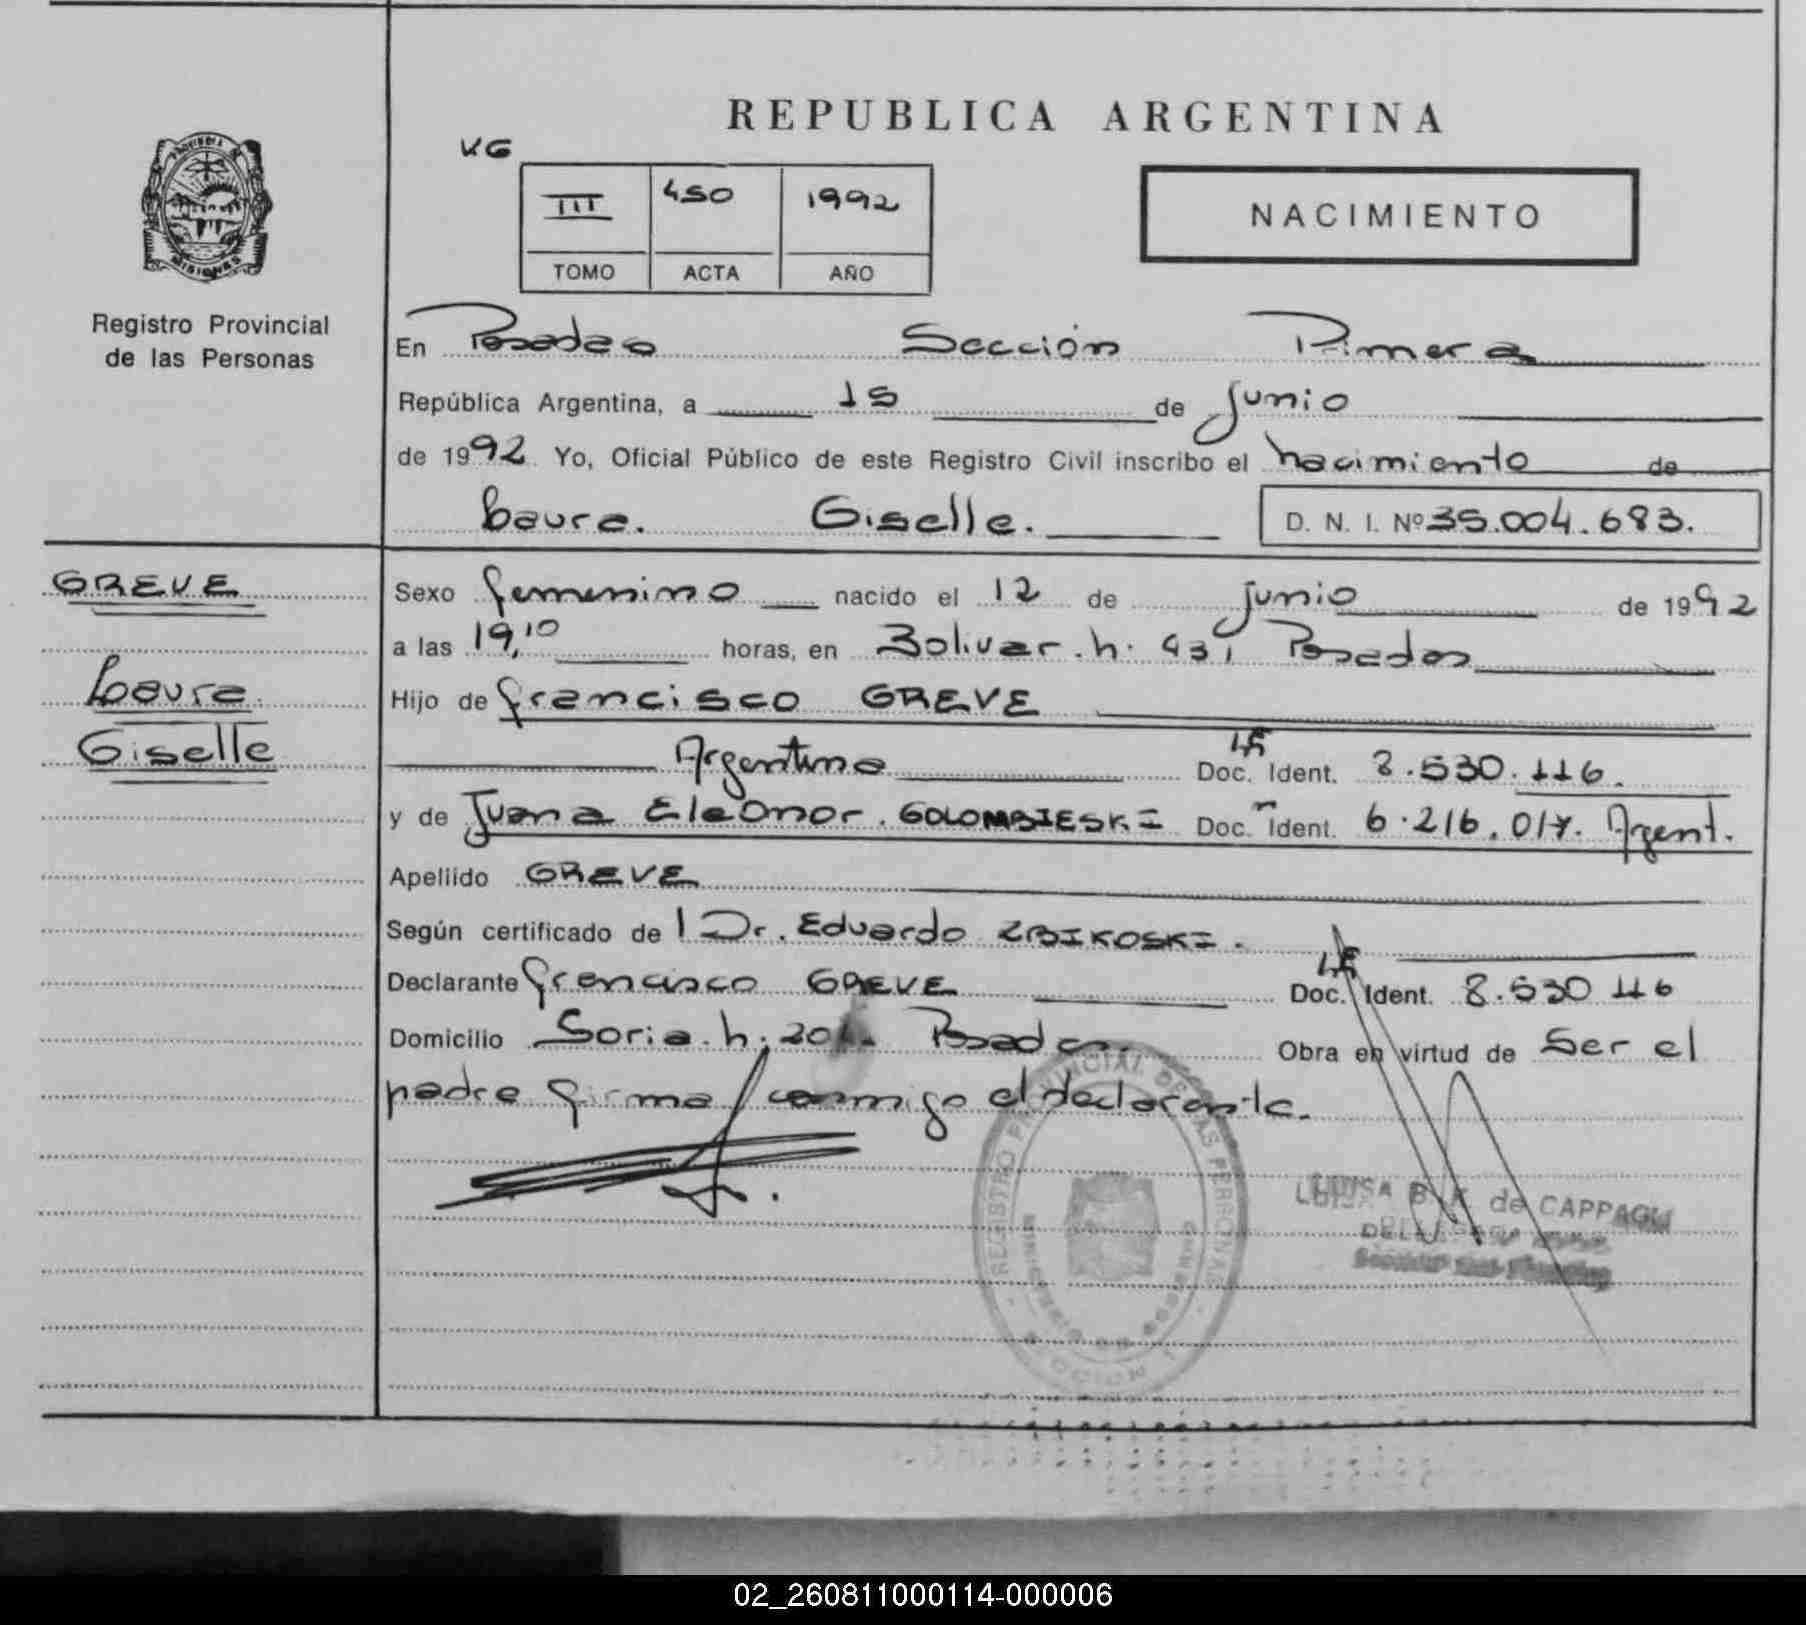 REPUBLICA ARGENTINA
PROVINCIA DE
MISIONES
Registro Provincial
de las Personas
KG
III 450 1992
TOMO ACTA AÑO
NACIMIENTO
En Posadas Sección Primera
República Argentina, a 15 de Junio
de 1992 Yo, Oficial Público de este Registro Civil inscribo el nacimiento de
Laura Giselle. D. N. I. Nº 35.004.683.
GREVE
Laura
Giselle
Sexo femenino nacido el 12 de junio de 1992
a las 19,10 horas, en Bolivar h. 431 Posadas
Hijo de francisco GREVE
Argentino LE Doc. Ident. 8.530.116.
y de Juana Eleonor GOLOMBIESKI Doc. Ident. 6.216.017. Argent.
Apellido GREVE
Según certificado de l Dr. Eduardo ZBIKOSKI.
Declarante francisco GREVE LE Doc. Ident. 8.530 116
Domicilio Soria h. Posadas. Obra en virtud de Ser el
padre firma conmigo el declarante.
REGISTRO PROVINCIAL DE LAS PERSONAS
MINISTERIO DE GOBIERNO
LUISA B. K. de CAPPAGLI
02_260811000114-000006